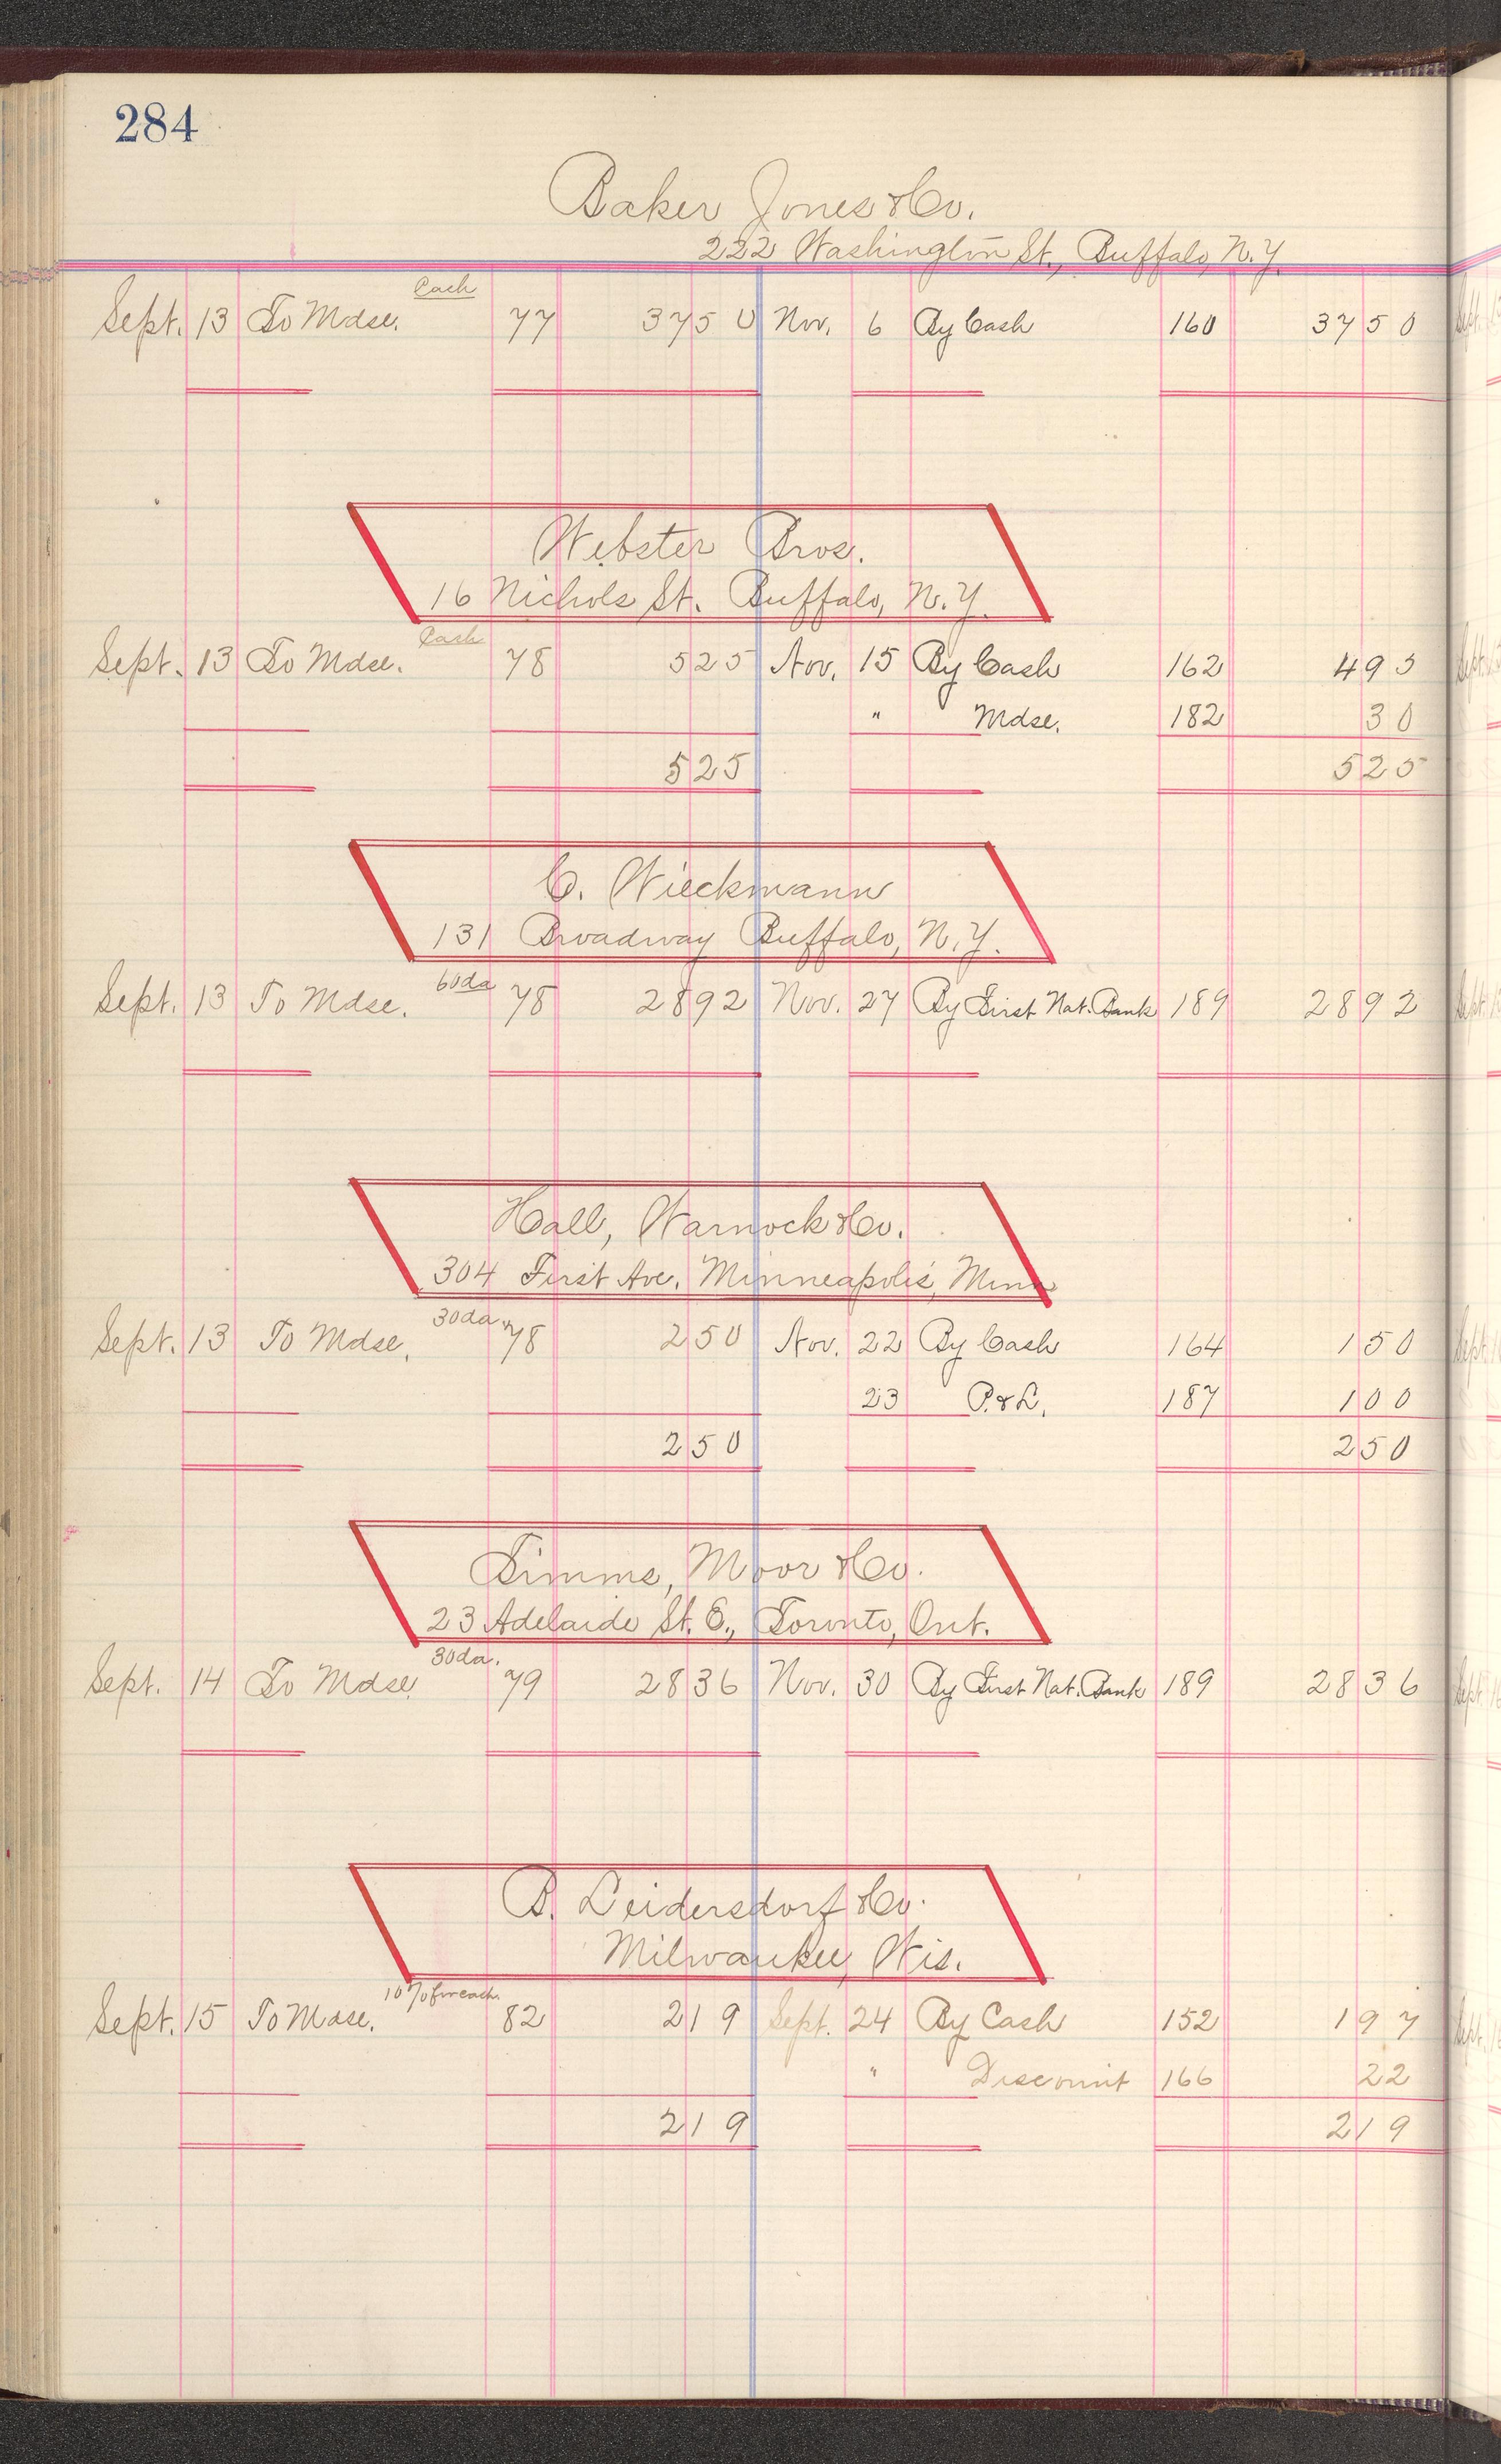 284
Baker Jones & Co.
222 Washington St., Buffalo, N.Y.
Cash
Sept. 13 To Mdse. 77 3750 Nov. 6 By Cash 160 3750
Webster Bros.
16 Nichols St. Buffalo, N.Y.
Cash
Sept. 13 To Mdse. 78 525 Nov. 15 By Cash 162 495
" Mdse. 182 30
525 525
C. Wieckmann
131 Broadway Buffalo, N.Y.
60da
Sept. 13 To Mdse. 78 2892 Nov. 27 By First Nat. Bank 189 2892
Hall, Warnock & Co.
304 First Ave. Minneapolis, Minn
30da
Sept. 13 To Mdse. 78 250 Nov. 22 By Cash 164 150
23 P. & L. 187 100
250 250
Simms, Moor & Co.
23 Adelaide St. E., Toronto, Ont.
30da.
Sept. 14 To Mdse. 79 2836 Nov. 30 By First Nat. Bank 189 2836
B. Leidersdorf & Co.
Milwaukee, Wis.
10%
Sept. 15 To Mdse. 82 219 Sept. 24 By Cash 152 197
" Discount 166 22
219 219